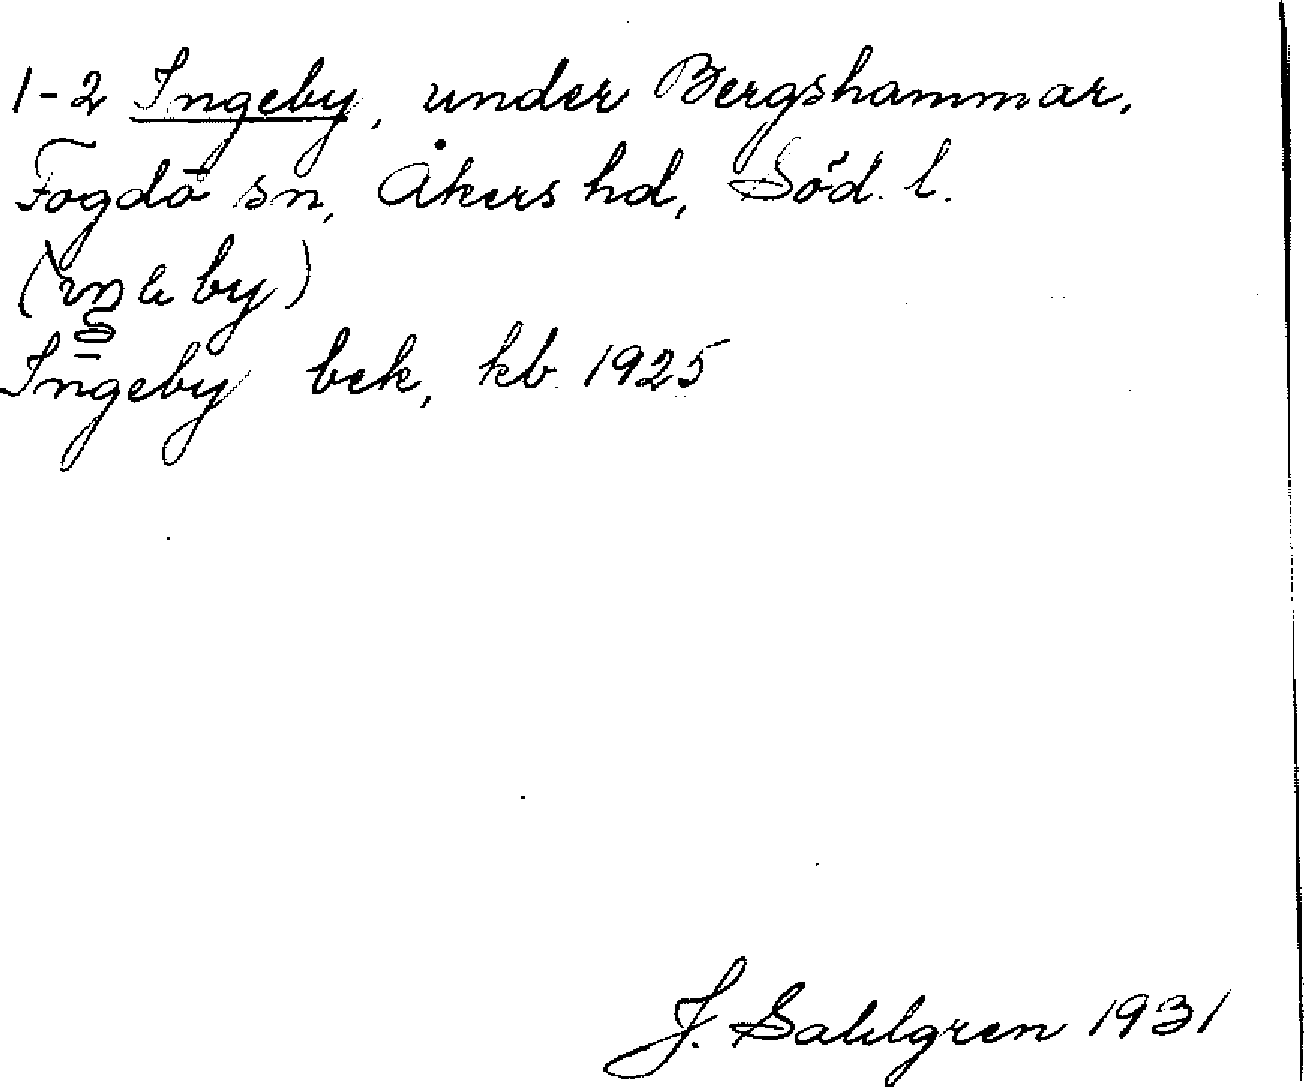 1-2 Ingeby, under Bergshammar,
Fogdö sn, Åkers hd, Söd. l.
by)
Ingeby bek, kb 1925
J. Sahlgren 1931